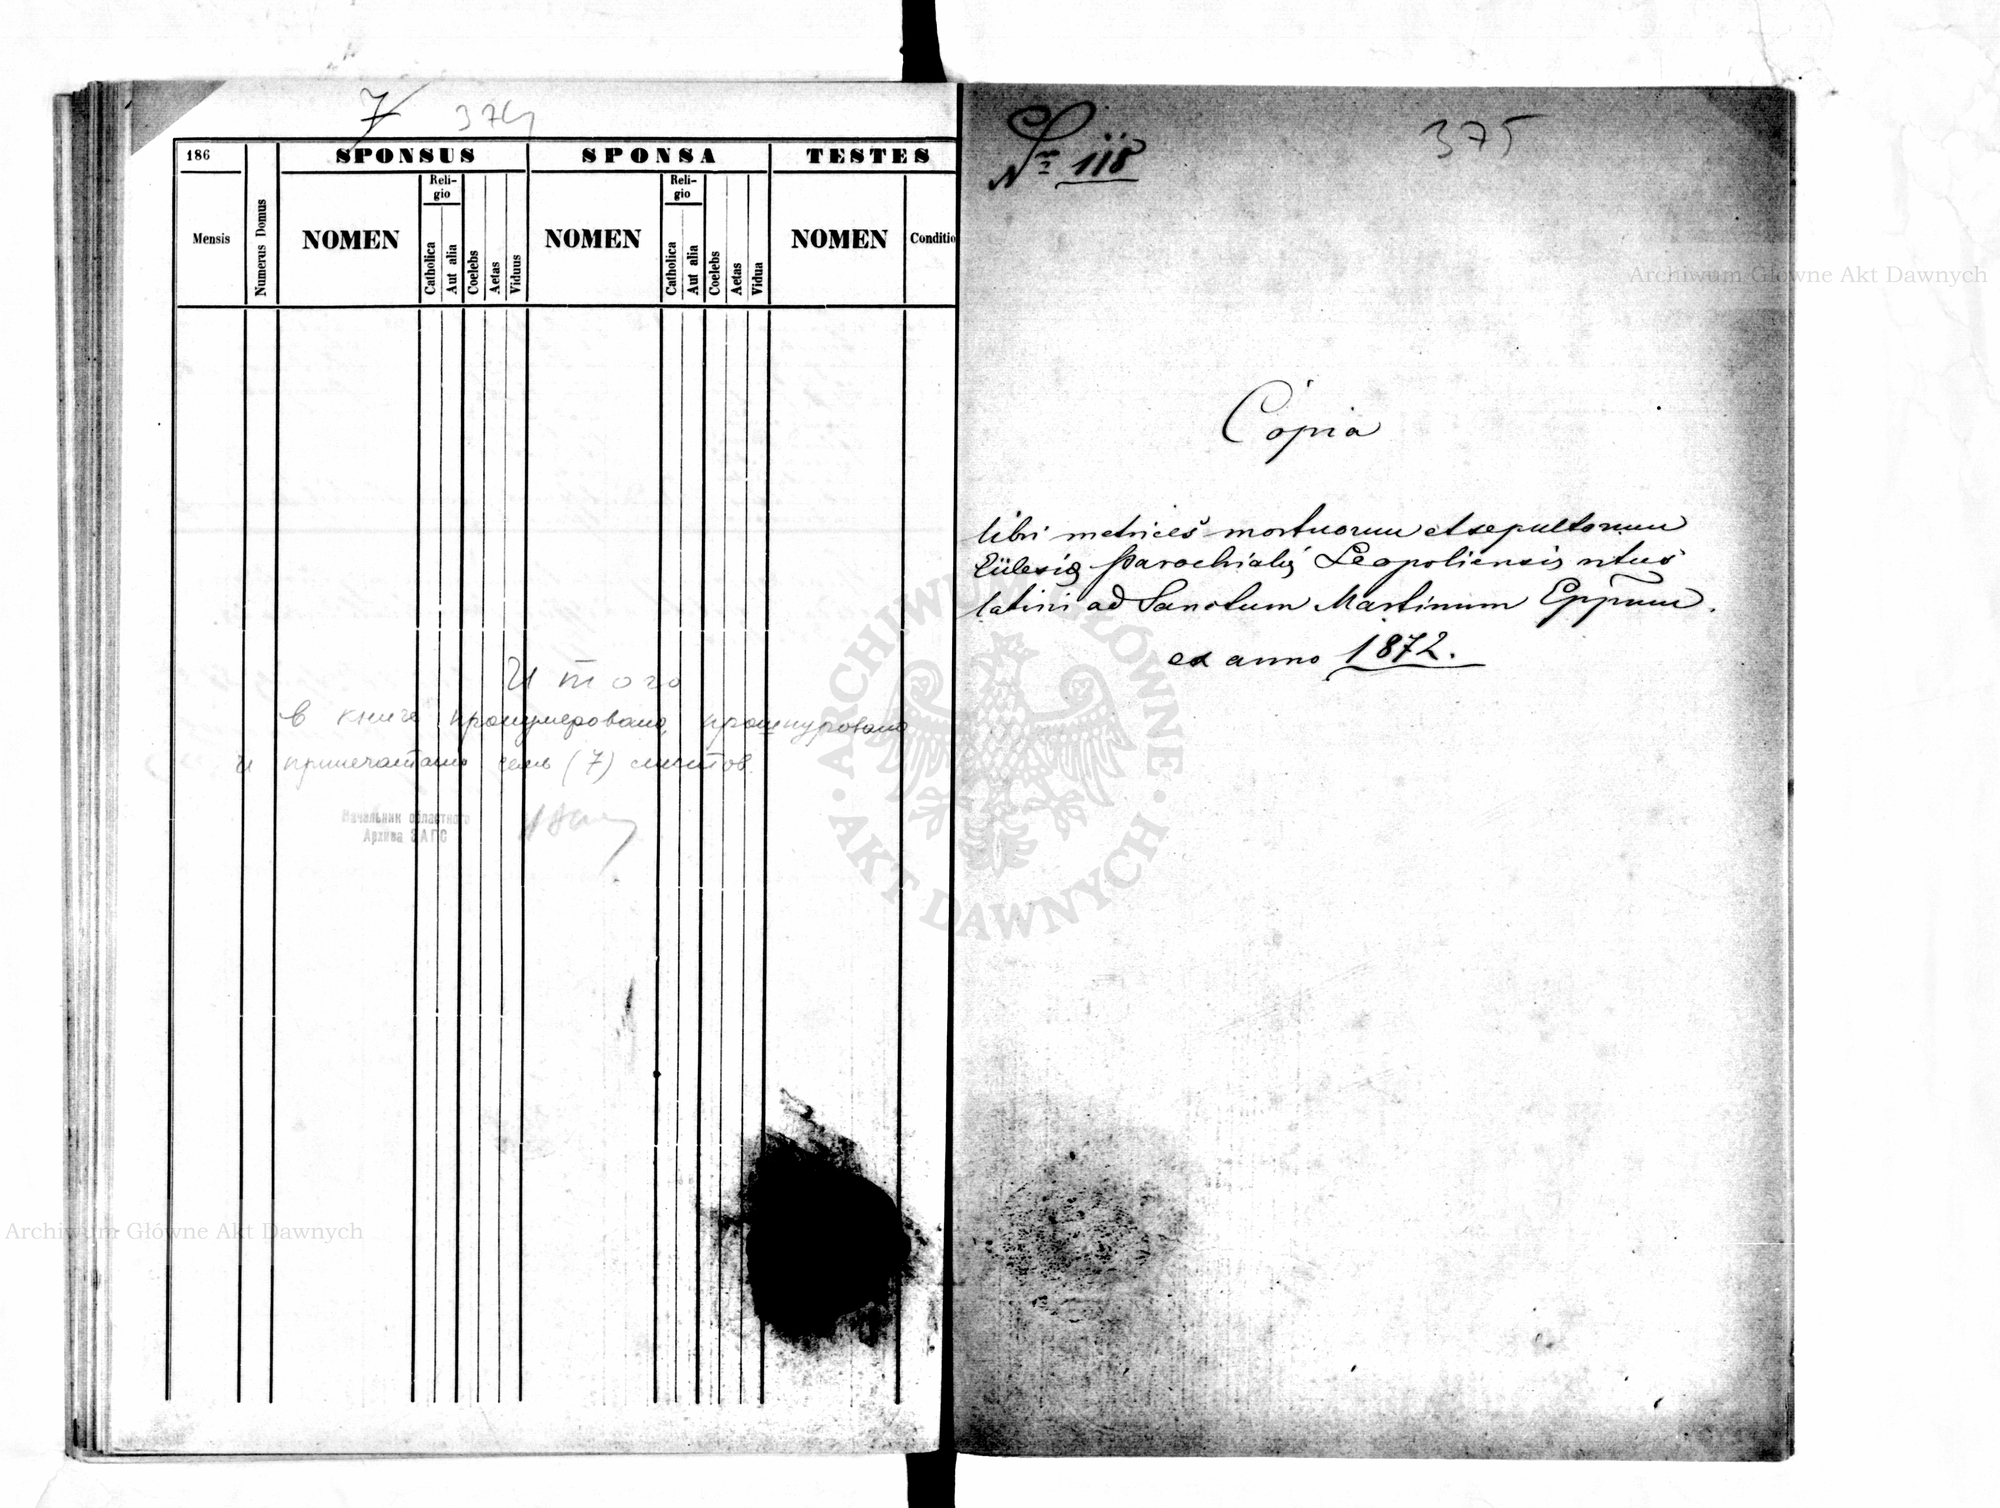 7 374
186
SPONSUS SPONSA TESTES
Mensis
Numerus Domus
NOMEN
Religio
Catholica
Aut alia
Coelebs
Aetas
Viduus
NOMEN
Religio
Catholica
Aut alia
Coelebs
Aetas
Vidua
NOMEN
Conditio
Итого
в книге пронумеровано, прошнуровано
и припечатано семь (7) листов
Начальник областного
Архива ЗАГС
Nr 118
375
Copia
libri metrices mortuorum et sepultorum
Ecclesiæ Parochialis Leopoliensis ritus
latini ad Sanctum Martinum Eppum.
ex anno 1872.
Archiwum Główne Akt Dawnych
Archiwum Główne Akt Dawnych
ARCHIWUM GŁÓWNE
AKT DAWNYCH